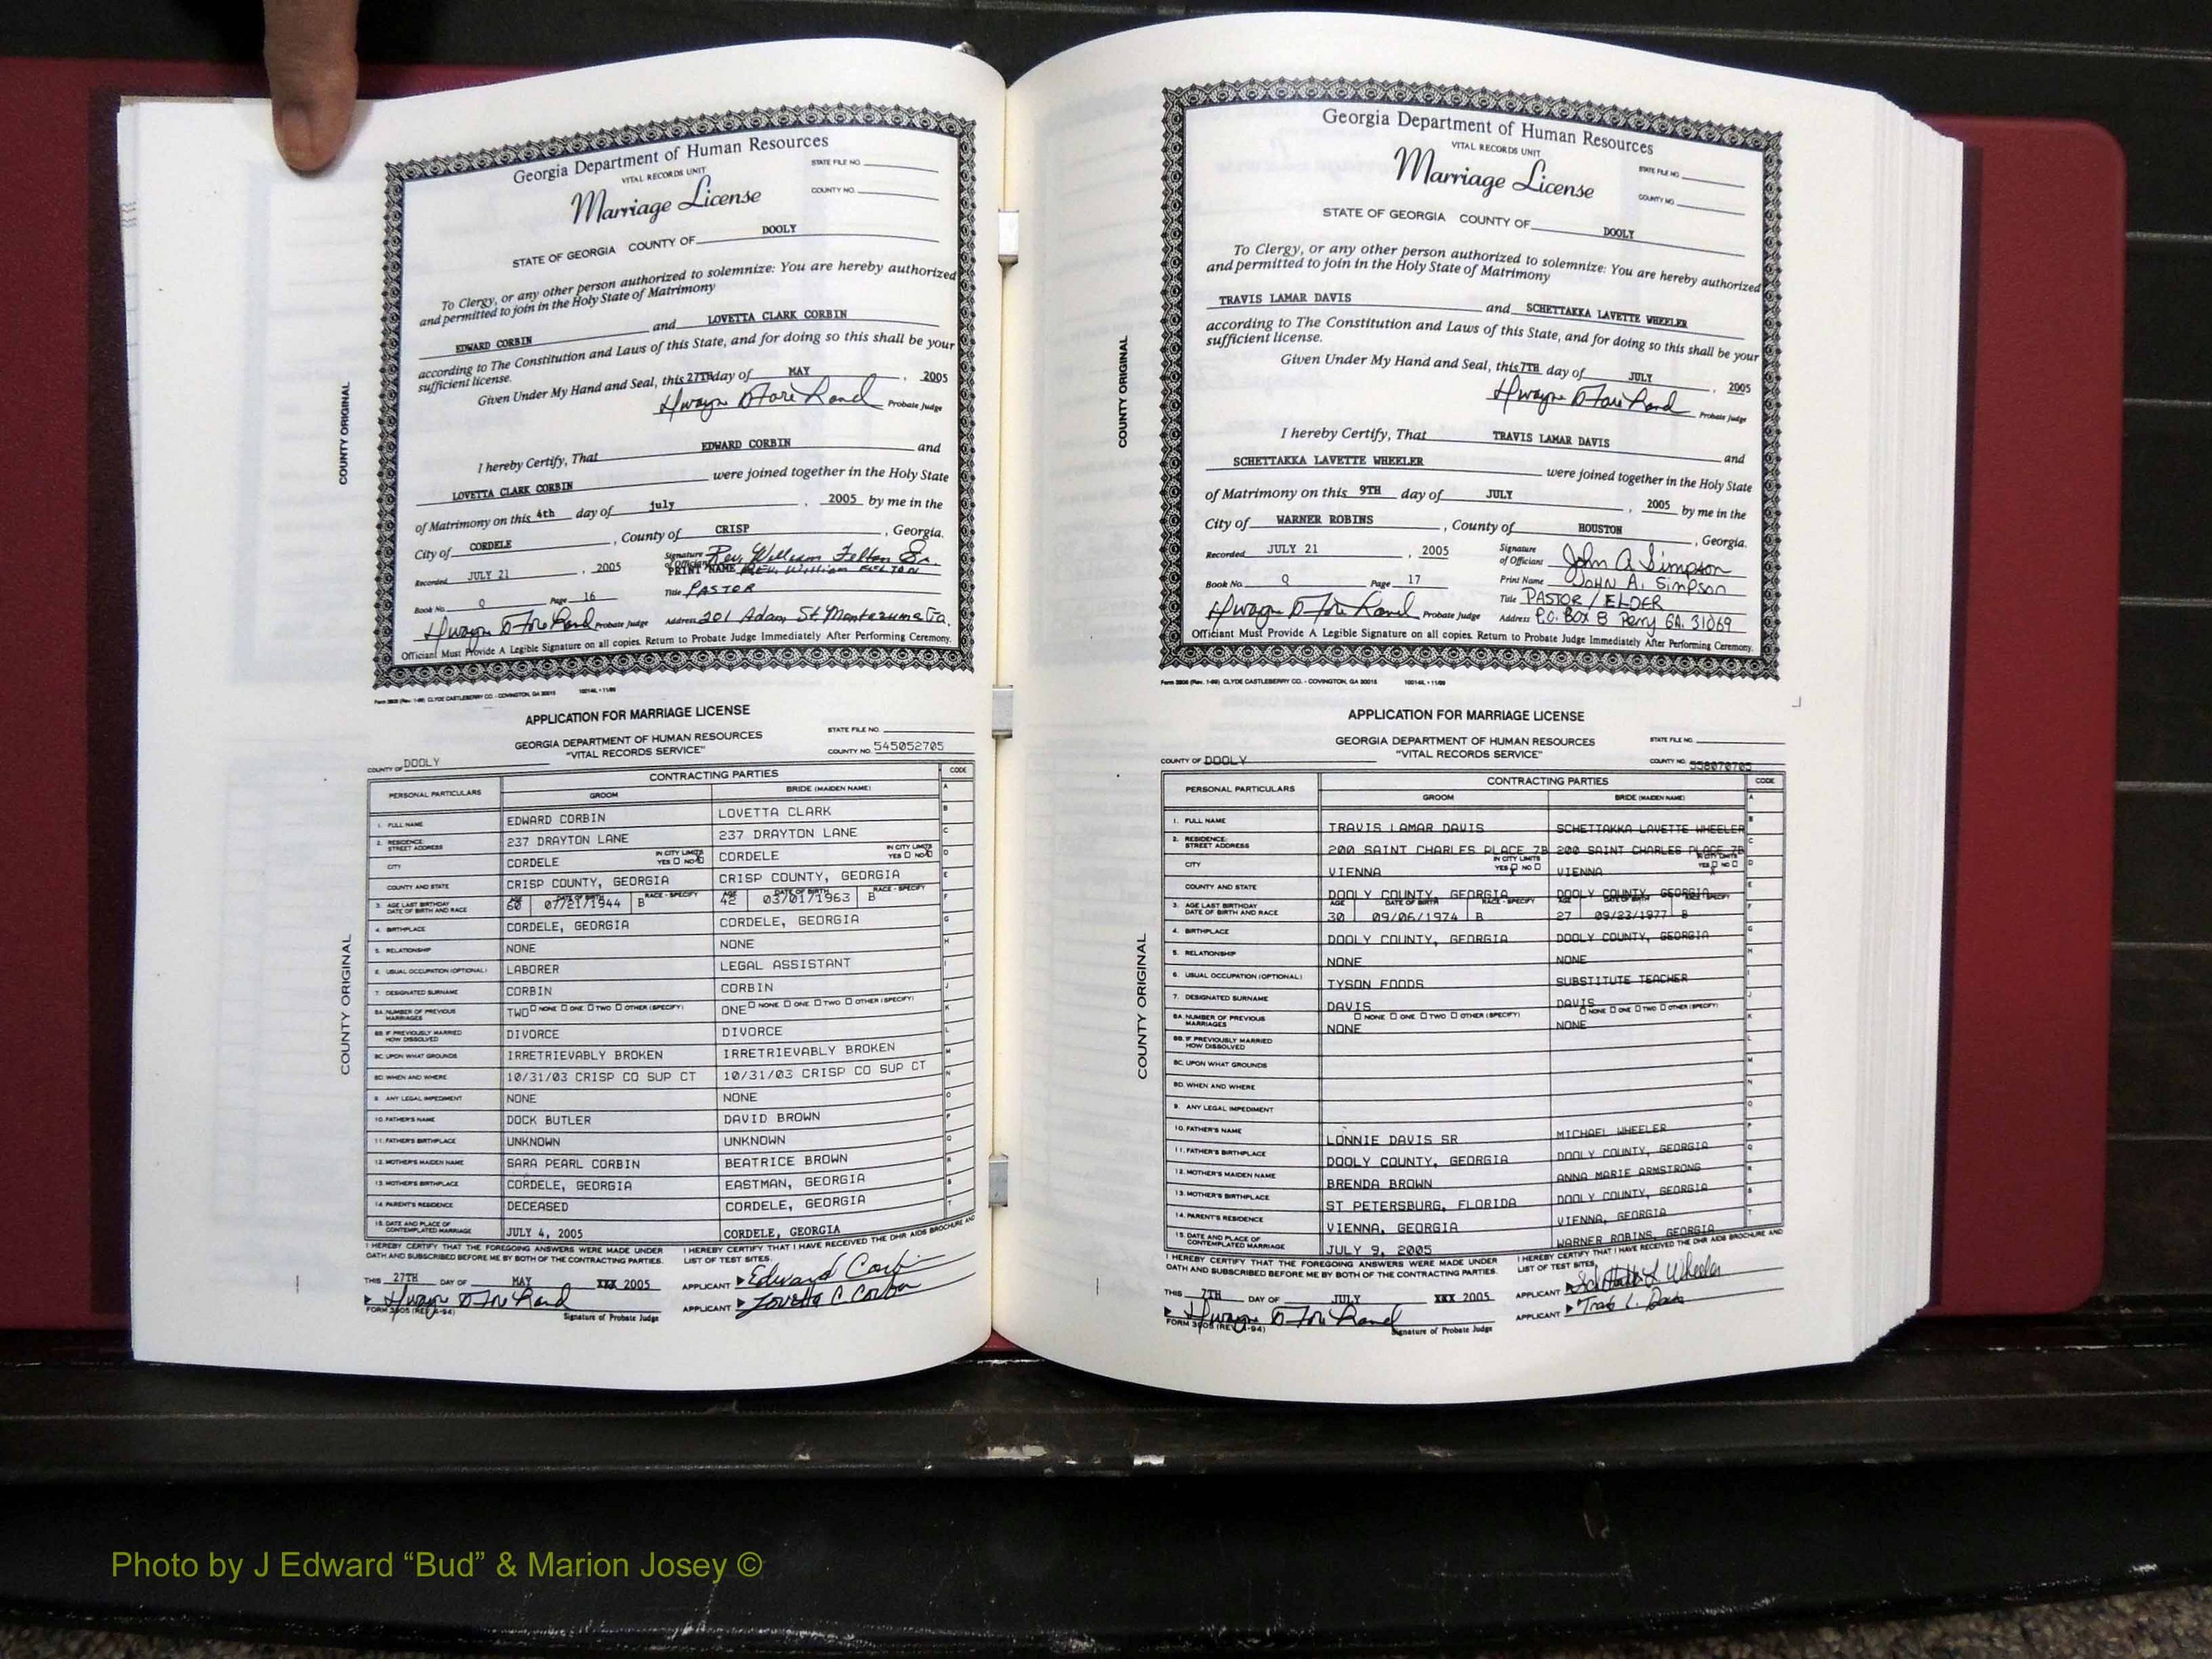 Georgia Department of Human Resources
VITAL RECORDS UNIT
STATE FILE NO.
Marriage License
COUNTY NO.
STATE OF GEORGIA COUNTY OF DOOLY
To Clergy, or any other person authorized to solemnize: You are hereby authorized
and permitted to join in the Holy State of Matrimony
EDWARD CORBIN and LOVETTA CLARK CORBIN
according to The Constitution and Laws of this State, and for doing so this shall be your
sufficient license.
Given Under My Hand and Seal, this 27TH day of MAY, 2005
Probate Judge
I hereby Certify, That EDWARD CORBIN and
LOVETTA CLARK CORBIN were joined together in the Holy State
of Matrimony on this 4th day of july, 2005 by me in the
City of CORDELE, County of CRISP, Georgia.
Recorded JULY 21, 2005 Signature of Officiant Rev. William Felton Sr.
PRINT NAME REV. William FELTON
Book No. Q Page 16 Title PASTOR
Probate Judge Address 201 Adam St. Montezuma Ga.
Officiant Must Provide A Legible Signature on all copies. Return to Probate Judge Immediately After Performing Ceremony.
COUNTY ORIGINAL
Form 3908 (Rev. 1-99) CLYDE CASTLEBERRY CO. - COVINGTON, GA 30015
APPLICATION FOR MARRIAGE LICENSE
GEORGIA DEPARTMENT OF HUMAN RESOURCES
"VITAL RECORDS SERVICE"
STATE FILE NO.
COUNTY OF DOOLY COUNTY NO. 545052705
PERSONAL PARTICULARS CONTRACTING PARTIES CODE
GROOM BRIDE (MAIDEN NAME)
1. FULL NAME EDWARD CORBIN LOVETTA CLARK
2. RESIDENCE: STREET ADDRESS 237 DRAYTON LANE 237 DRAYTON LANE
CITY CORDELE IN CITY LIMITS YES NO CORDELE IN CITY LIMITS YES NO
COUNTY AND STATE CRISP COUNTY, GEORGIA CRISP COUNTY, GEORGIA
3. AGE LAST BIRTHDAY DATE OF BIRTH AND RACE AGE 60 DATE OF BIRTH 07/21/1944 RACE - SPECIFY B AGE 42 DATE OF BIRTH 03/01/1963 RACE - SPECIFY B
4. BIRTHPLACE CORDELE, GEORGIA CORDELE, GEORGIA
5. RELATIONSHIP NONE NONE
6. USUAL OCCUPATION (OPTIONAL) LABORER LEGAL ASSISTANT
7. DESIGNATED SURNAME CORBIN CORBIN
8A. NUMBER OF PREVIOUS MARRIAGES TWO NONE ONE TWO OTHER (SPECIFY) ONE NONE ONE TWO OTHER (SPECIFY)
8B. IF PREVIOUSLY MARRIED HOW DISSOLVED DIVORCE DIVORCE
8C. UPON WHAT GROUNDS IRRETRIEVABLY BROKEN IRRETRIEVABLY BROKEN
8D. WHEN AND WHERE 10/31/03 CRISP CO SUP CT 10/31/03 CRISP CO SUP CT
9. ANY LEGAL IMPEDIMENT NONE NONE
10. FATHER'S NAME DOCK BUTLER DAVID BROWN
11. FATHER'S BIRTHPLACE UNKNOWN UNKNOWN
12. MOTHER'S MAIDEN NAME SARA PEARL CORBIN BEATRICE BROWN
13. MOTHER'S BIRTHPLACE CORDELE, GEORGIA EASTMAN, GEORGIA
14. PARENT'S RESIDENCE DECEASED CORDELE, GEORGIA
15. DATE AND PLACE OF CONTEMPLATED MARRIAGE JULY 4, 2005 CORDELE, GEORGIA
I HEREBY CERTIFY THAT THE FOREGOING ANSWERS WERE MADE UNDER
OATH AND SUBSCRIBED BEFORE ME BY BOTH OF THE CONTRACTING PARTIES.
I HEREBY CERTIFY THAT I HAVE RECEIVED THE DHR AIDS BROCHURE AND
LIST OF TEST SITES.
THIS 27TH DAY OF MAY XXX 2005 APPLICANT Edward Corbin
APPLICANT Lovetta C Corbin
FORM 3905 (REV. 4-94) Signature of Probate Judge
COUNTY ORIGINAL
Georgia Department of Human Resources
VITAL RECORDS UNIT
STATE FILE NO.
Marriage License
COUNTY NO.
STATE OF GEORGIA COUNTY OF DOOLY
To Clergy, or any other person authorized to solemnize: You are hereby authorized
and permitted to join in the Holy State of Matrimony
TRAVIS LAMAR DAVIS and SCHETTAKKA LAVETTE WHEELER
according to The Constitution and Laws of this State, and for doing so this shall be your
sufficient license.
Given Under My Hand and Seal, this 7TH day of JULY, 2005
Probate Judge
I hereby Certify, That TRAVIS LAMAR DAVIS and
SCHETTAKKA LAVETTE WHEELER were joined together in the Holy State
of Matrimony on this 9TH day of JULY, 2005 by me in the
City of WARNER ROBINS, County of HOUSTON, Georgia.
Recorded JULY 21, 2005 Signature of Officiant John A Simpson
Book No. Q Page 17 Print Name JOHN A. Simpson
Title PASTOR / ELDER
Probate Judge Address P.O. Box 8 Perry GA. 31069
Officiant Must Provide A Legible Signature on all copies. Return to Probate Judge Immediately After Performing Ceremony.
COUNTY ORIGINAL
Form 3908 (Rev. 1-99) CLYDE CASTLEBERRY CO. - COVINGTON, GA 30015
APPLICATION FOR MARRIAGE LICENSE
GEORGIA DEPARTMENT OF HUMAN RESOURCES
"VITAL RECORDS SERVICE"
STATE FILE NO.
COUNTY OF DOOLY COUNTY NO. 558070705
PERSONAL PARTICULARS CONTRACTING PARTIES CODE
GROOM BRIDE (MAIDEN NAME)
1. FULL NAME TRAVIS LAMAR DAVIS SCHETTAKKA LAVETTE WHEELER
2. RESIDENCE: STREET ADDRESS 200 SAINT CHARLES PLACE 7B 200 SAINT CHARLES PLACE 7B
CITY VIENNA IN CITY LIMITS YES NO VIENNA IN CITY LIMITS YES NO
COUNTY AND STATE DOOLY COUNTY, GEORGIA DOOLY COUNTY, GEORGIA
3. AGE LAST BIRTHDAY DATE OF BIRTH AND RACE AGE 30 DATE OF BIRTH 09/06/1974 RACE - SPECIFY B AGE 27 DATE OF BIRTH 09/23/1977 RACE - SPECIFY B
4. BIRTHPLACE DOOLY COUNTY, GEORGIA DOOLY COUNTY, GEORGIA
5. RELATIONSHIP NONE NONE
6. USUAL OCCUPATION (OPTIONAL) TYSON FOODS SUBSTITUTE TEACHER
7. DESIGNATED SURNAME DAVIS DAVIS
8A. NUMBER OF PREVIOUS MARRIAGES NONE ONE TWO OTHER (SPECIFY) NONE NONE ONE TWO OTHER (SPECIFY) NONE
8B. IF PREVIOUSLY MARRIED HOW DISSOLVED
8C. UPON WHAT GROUNDS
8D. WHEN AND WHERE
9. ANY LEGAL IMPEDIMENT
10. FATHER'S NAME LONNIE DAVIS SR MICHAEL WHEELER
11. FATHER'S BIRTHPLACE DOOLY COUNTY, GEORGIA DOOLY COUNTY, GEORGIA
12. MOTHER'S MAIDEN NAME BRENDA BROWN ANNA MARIE ARMSTRONG
13. MOTHER'S BIRTHPLACE ST PETERSBURG, FLORIDA DOOLY COUNTY, GEORGIA
14. PARENT'S RESIDENCE VIENNA, GEORGIA VIENNA, GEORGIA
15. DATE AND PLACE OF CONTEMPLATED MARRIAGE JULY 9, 2005 WARNER ROBINS, GEORGIA
I HEREBY CERTIFY THAT THE FOREGOING ANSWERS WERE MADE UNDER
OATH AND SUBSCRIBED BEFORE ME BY BOTH OF THE CONTRACTING PARTIES.
I HEREBY CERTIFY THAT I HAVE RECEIVED THE DHR AIDS BROCHURE AND
LIST OF TEST SITES.
THIS 7TH DAY OF JULY XXX 2005 APPLICANT
APPLICANT
FORM 3905 (REV. 4-94) Signature of Probate Judge
COUNTY ORIGINAL
Photo by J Edward “Bud” & Marion Josey ©